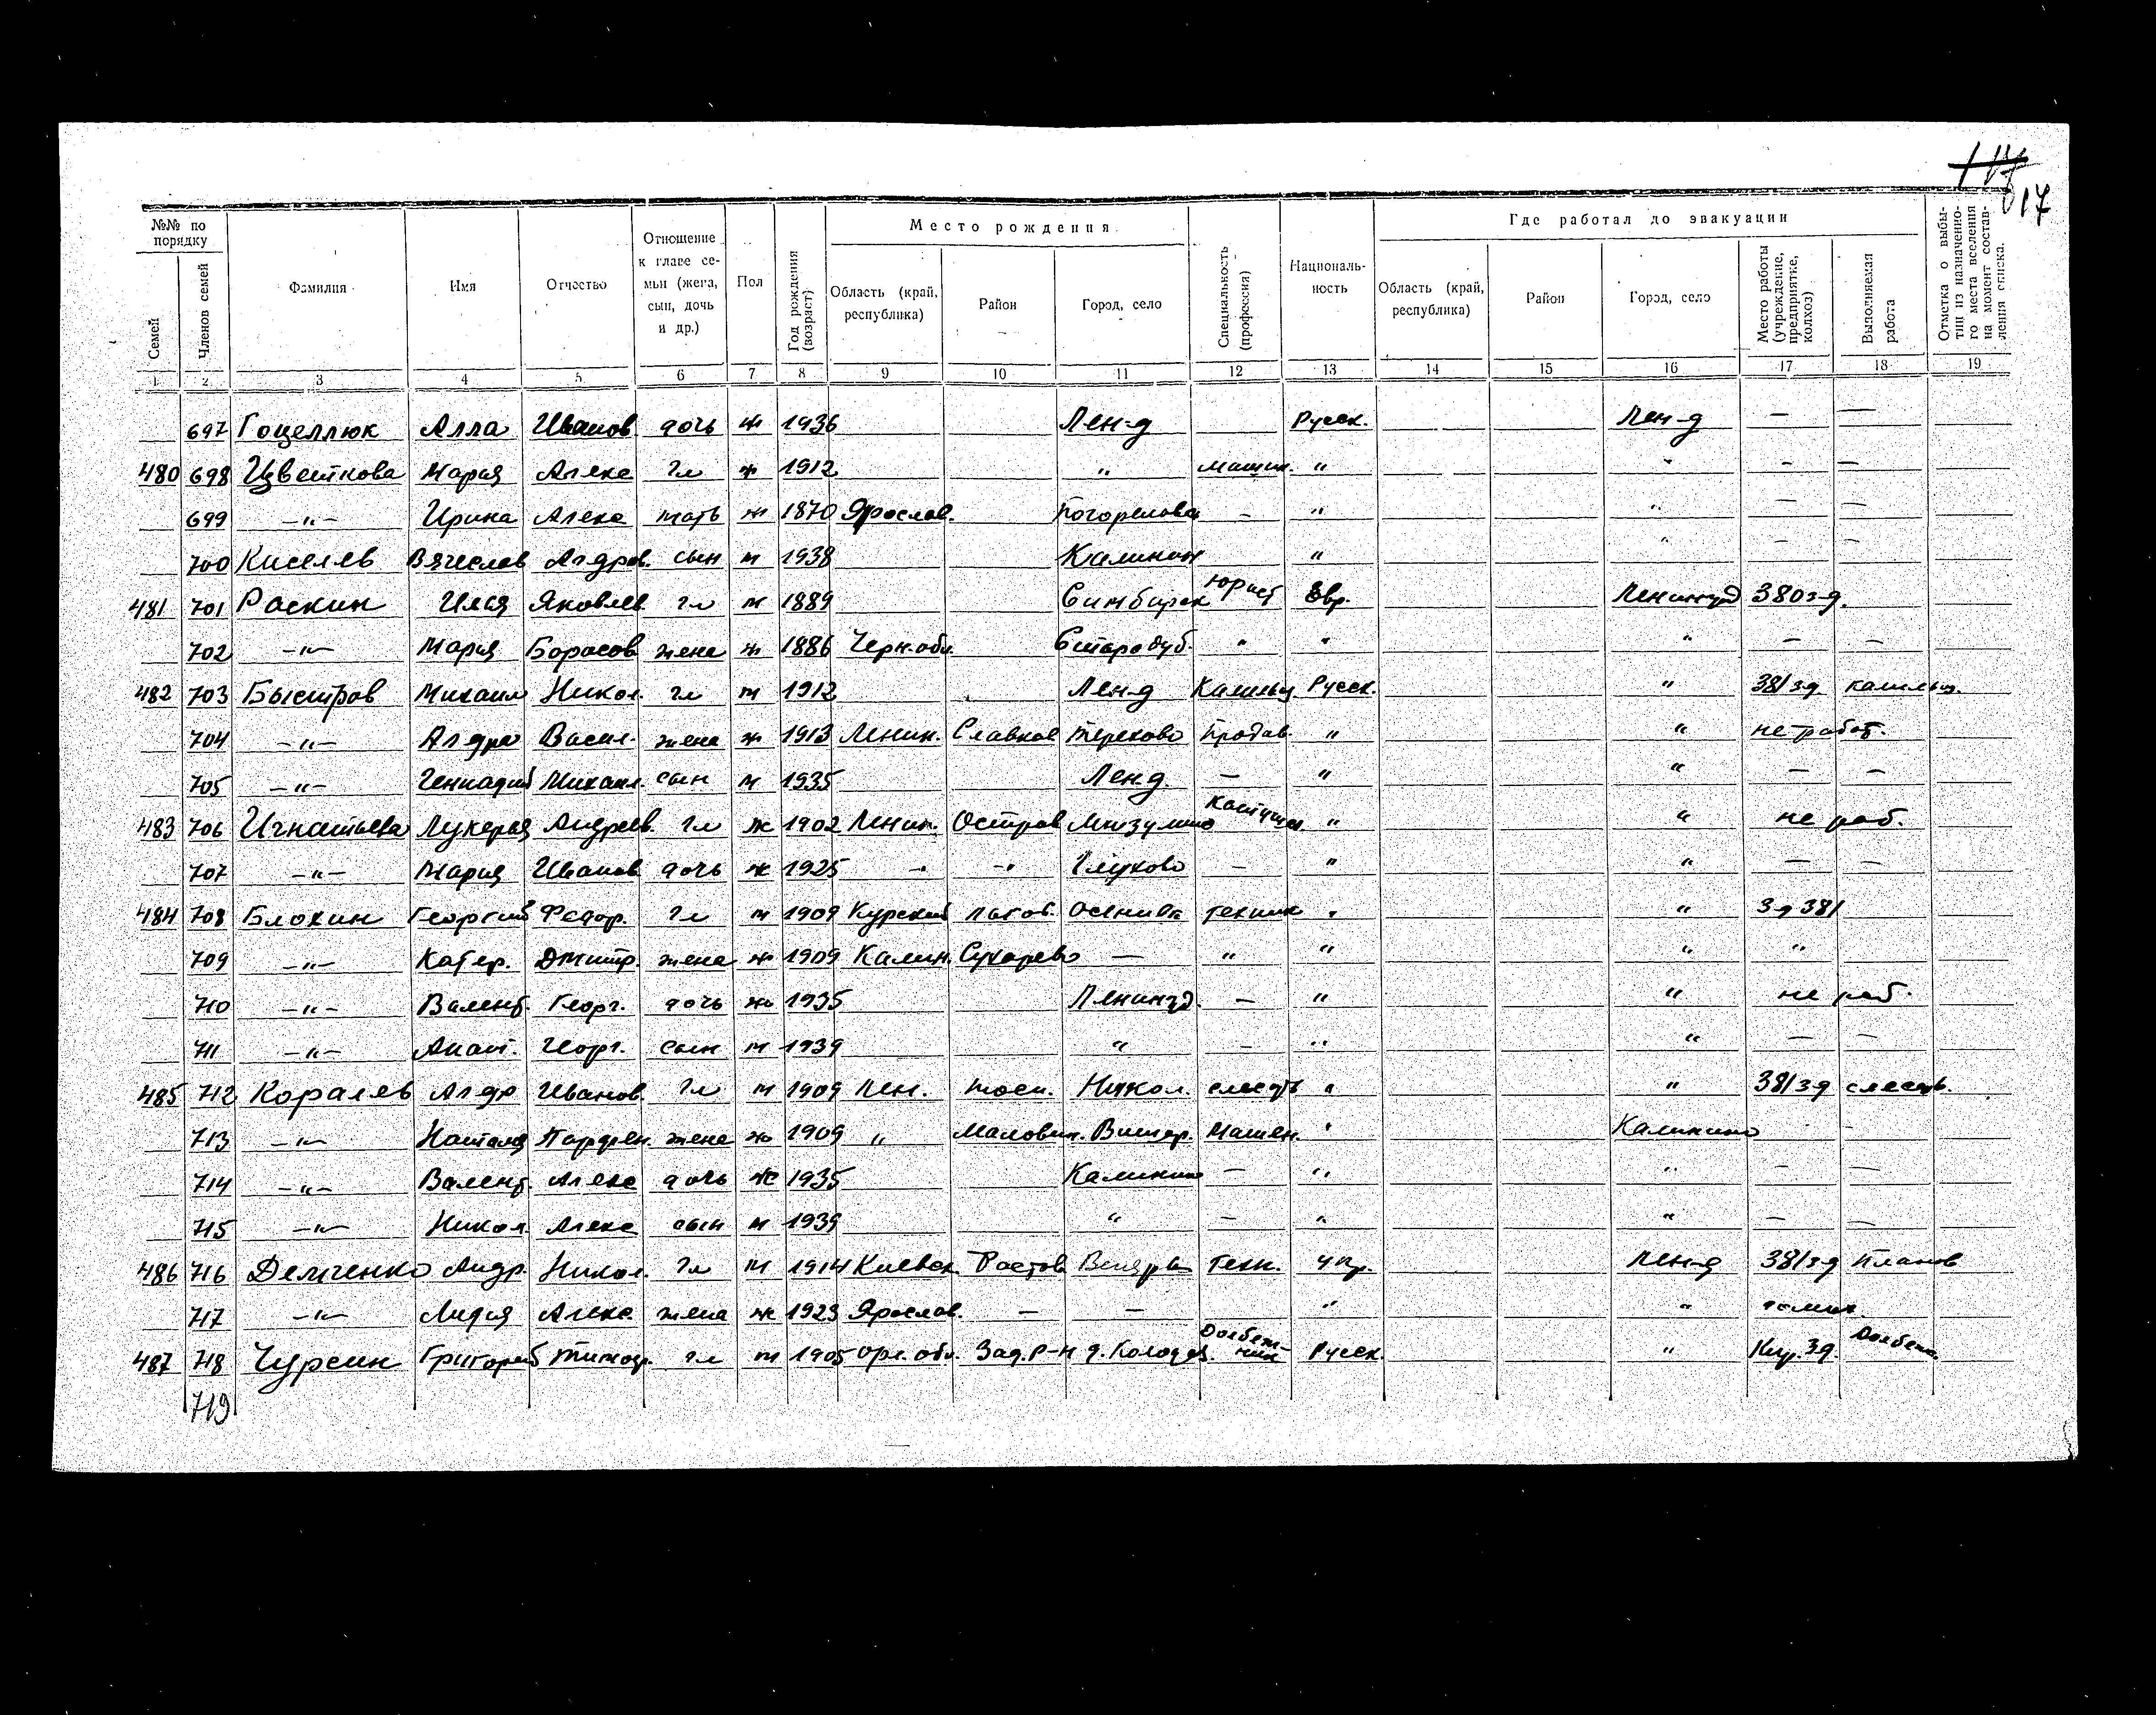 117
17
№№ по порядку
Семей
Членов семей
Фамилия
Имя
Отчество
Отношение к главе семьи (жена, сын, дочь и др.)
Пол
Год рождения (возраст)
Место рождения
Область (край, республика)
Район
Город, село
Специальность (профессия)
Национальность
Где работал до эвакуации
Область (край, республика)
Район
Город, село
Место работы (учреждение, предприятие, колхоз)
Выполняемая работа
Отметка о выбытии из назначенного места вселения на момент составления списка.
1 2 3 4 5 6 7 8 9 10 11 12 13 14 15 16 17 18 19
697 Гоцеллюк Алла Иванов. дочь ж 1936 Лен-д Русск. Лен-д — —
480 698 Цветкова Мария Алекс гл ж 1912 " машин. " " - —
699 —"— Ирина Алекс мать ж 1870 Ярослав. Погорелово - " " — —
700 Киселев Вячеслав Алдров. сын м 1938 Калинин " " - -
481 701 Раскин Илья Яковлев. гл м 1889 Симбирск юрист Евр. Ленингд 380 з-д.
702 —"— Мария Борисов жена ж 1886 Черн.обл. Стародуб. " " " — —
482 703 Быстров Михаил Никол. гл м 1912 Лен-д Калильщ Русск. " 381 зд калильщ.
704 —"— Алдра Васил. жена ж 1913 Ленин. Славков Терехово Продав. " " не работ.
705 —"— Геннадий Михаил. сын м 1935 Ленд. — " " — —
483 706 Игнатьева Лукерья Андреев. гл ж 1902 Ленин. Остров " " не раб.
707 —"— Мария Иванов. дочь ж 1925 " —" Глухово — " " — —
484 708 Блохин Георгий Федор. гл м 1909 Курский техник " " Зд 381
709 —"— Катер. Дмитр. жена ж 1909 Калин. Сухарево — " " " "
710 —"— Валент. Георг. дочь ж 1935 Ленингд. — " " не раб.
711 —"— Анат. Георг. сын м 1939 " — " " — —
485 712 Королев Алдр Иванов. гл м 1909 Лен. тосн. Никол. слесарь " " 381 зд слесарь.
713 —"— Наталья Парфен. жена ж 1909 " Маловиш. Вишер. Машин. " Калинино - -
714 —"— Валент. Алекс дочь ж 1935 Калинино — " " — —
715 —"— Никол. Алекс сын м 1939 " — " " — —
486 716 Демченко Андр. Никол. гл м 1914 Киевск. Техн. Укр. Лен-д 381 зд Планов
717 —"— Лидия Алекс. жена ж 1923 Ярослав. — — " "
487 718 Чурсин Григорий Тимоф. гл м 1905 Орл. обл. Зад. Р-н д. Колодез. Долбежник Русск. " Кир. Зд. Долбежн.
719